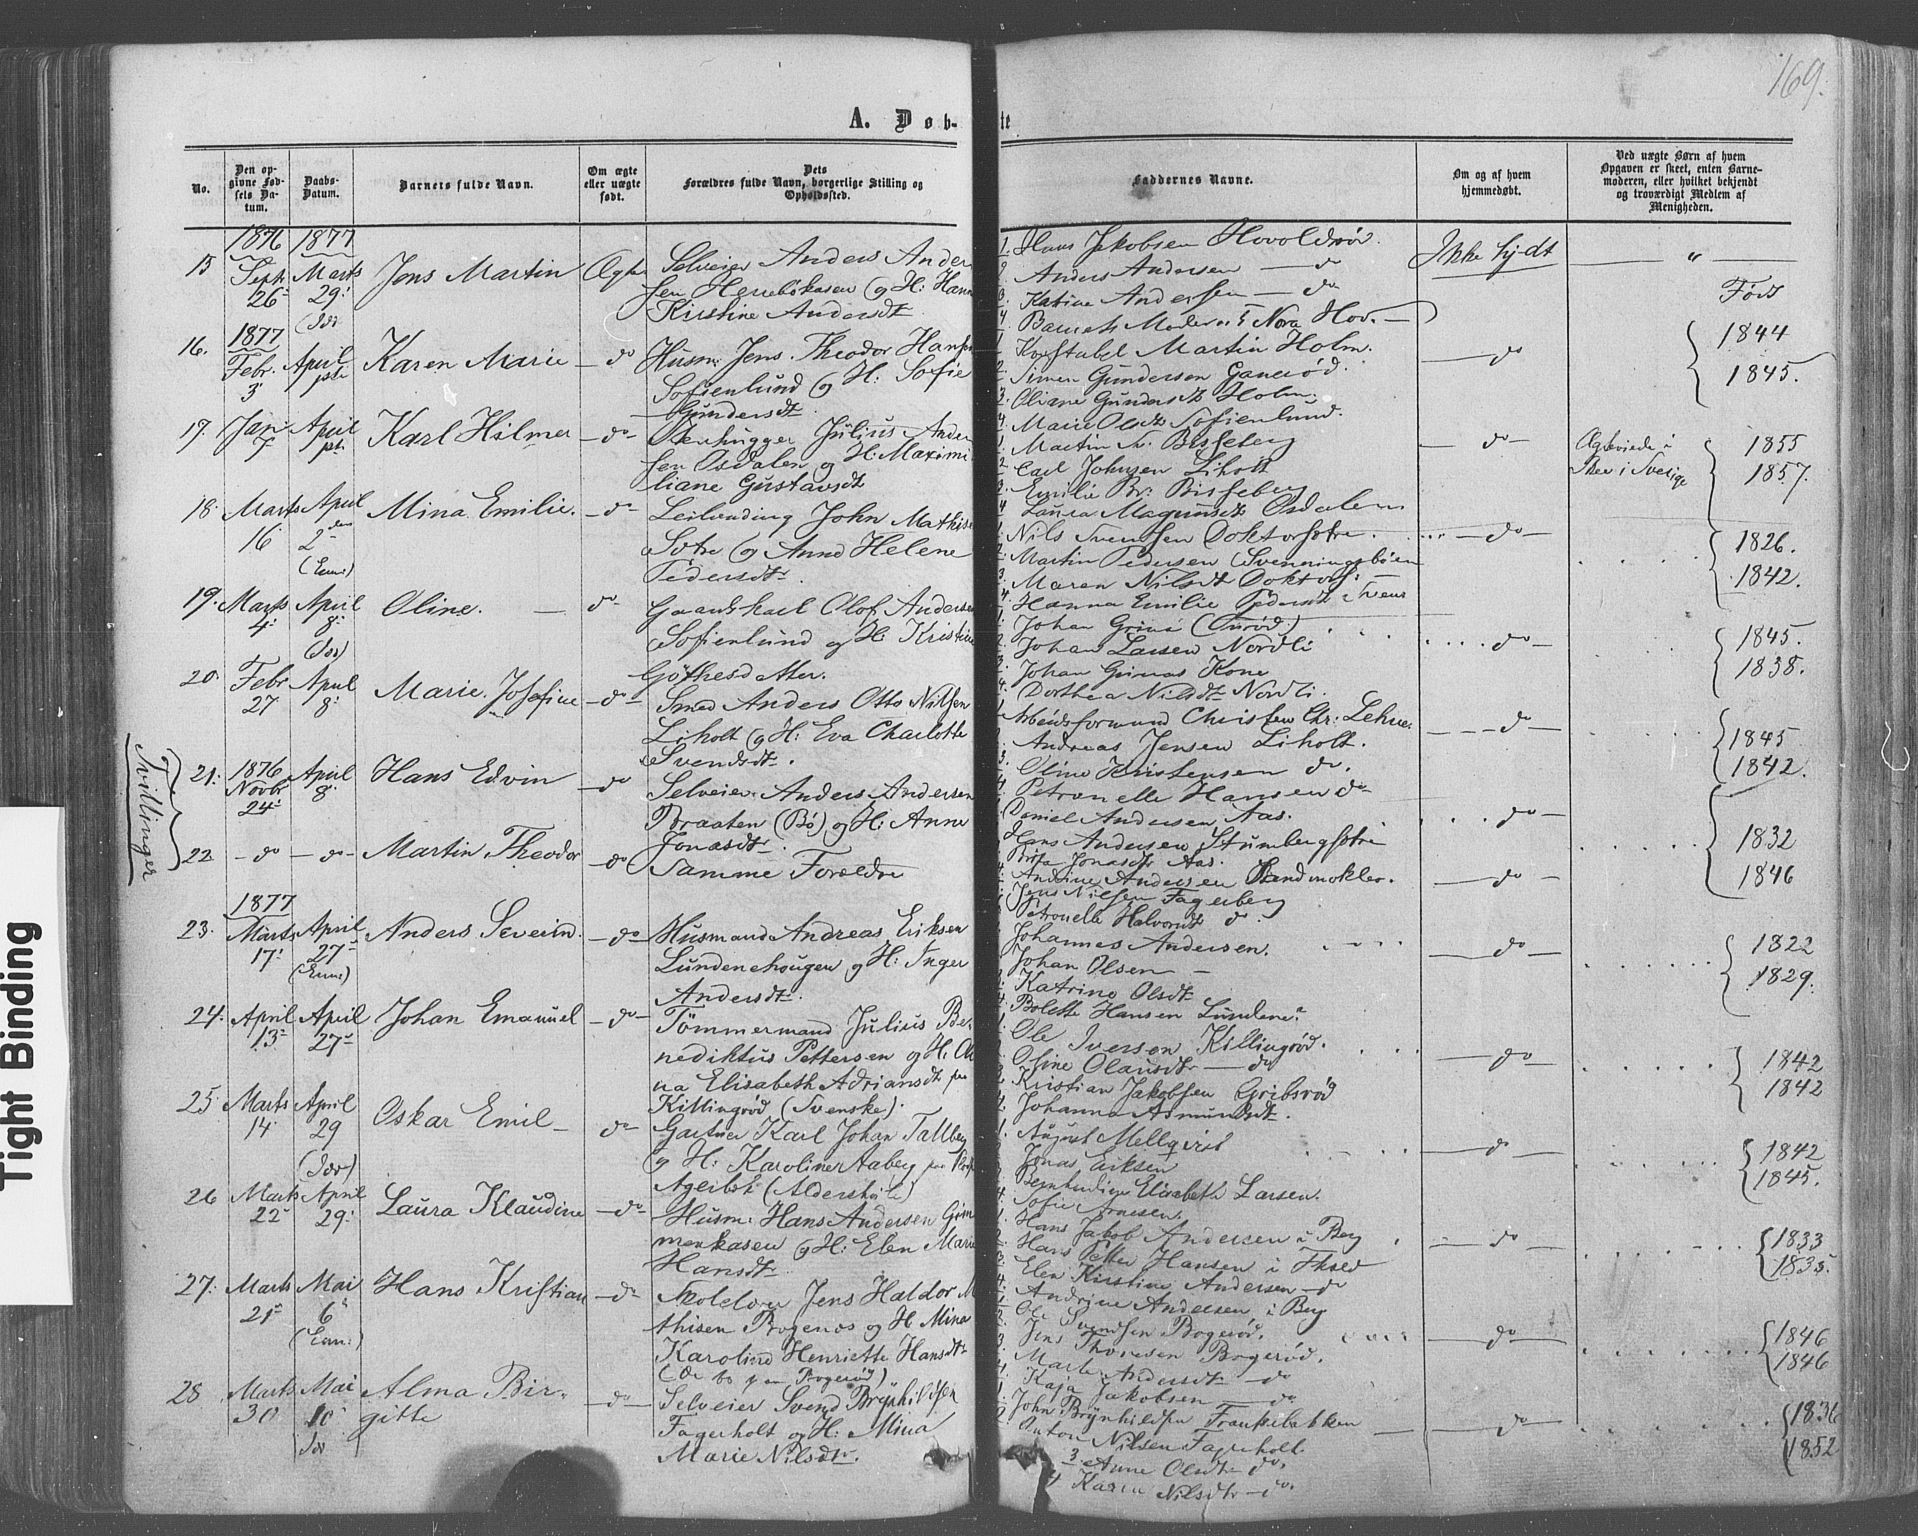 169.
A. Døb-
te
No.
Den op-
givne Fød-
sels Da-
tum.
Daabs-
Datum.
Barnets fulde Navn.
Om ægte
eller uægte
født.
Dets
Forældres fulde Navn, borgerlige Stilling og
Opholdssted.
Faddernes Navne.
Om og af hvem
hjemmedøbt.
Ved uægte Børn af hvem
Opgaven er skeet, enten Barne-
moderen, eller hvilket bekjendt
og troværdigt Medlem af
Menigheden.
15
1876
Sept.
26
1877
Marts
29.
(Idd)
Jens Martin
Ægte
Selveier Anders Ander
sen Herrebøkasen og H: Hanna
Kirstine Andersdt.
1. Hans Jakobsen Hovoldrød.
2. Anders Andersen — do
3. Katine Andersen — do
4. Barnets Moder
Ikke hjdt
— " —
Født
16.
1877
Febr.
3
April
1ste
Karen Marie
— do
Husm. Jens Theodor Hansen
Sofienlund og H: Sofie
Gundersdt.
1. Konstabel Martin Holm.
2. Simen Gundersen Ganerød.
3. Oliane Gundersdt Holm
4. Marie Olsdt Sofienlund.
— do
1844
1845.
17.
Jan
7
April
1ste
Karl Hilmer
— do —
Stenhugger Julius Ander
sen Osdalen og H: Maximi
liane Gustavsdt
1. Martin A. Bisseberg
2. Carl Johnsen Liholt
3. Emilie Br. Bisseberg
4. Laura Magnusdt Osdalen
— do —
Ægteviede i
Skee i Sverige
1855
1857.
18.
Marts
16
April
2den
(Enn:)
Mina Emilie.
— do —
Leilending John Mathise
Sætre og Anne Helene
Pedersdtr.
1. Nils Svendsen Doktorsætre.
2. Martin Pedersen Svenningsbøen
3. Maren Nilsdt Doktors:
4. Hanna Emilie Pedersdt
— do —
1826.
1842.
19.
Marts
4.
April
8.
(Idd)
Oline.
— do —
Gaardskarl Olof Andersen
Sofienlund og H: Kristine
Göthesdatter.
1. Johan
2. Johan Larsen Nordli
3. Johan Kone
4. Dorthea Nilsdt Nordli.
— do —
1845.
1838.
20.
Febr
27
April
8.
Marie Josefine
— do —
Smed Anders Otto Nilsen
Liholt og H: Eva Charlotte
Svendsdt.
1. Arbeidsformand Christen Chr: Lehne
2. Andreas Jensen Liholt.
3. Oline Kristensen do.
4. Petronelle Hansen do
— do —
1845
1842.
Tvillinger
21.
1876
Novbr
24
April
8.
Hans Edvin
— do
Selveier Anders Andersen
Braaten (Bø) og H: Anne
Jonasdt.
1. Daniel Andersen Aas.
2. Hans Andersen Stumbergsætre
3. Brita Jonasdtr Aas.
4. Andrine Andersen
— do —
1832
1846
22
— do —
— do —
Martin Theodor
— do
Samme Forældre
Jens Nilsen Fagerberg
Petronelle Halvorsdt do
— do —
23.
1877
Marts
17.
April
27
(Enn:)
Anders Severin.
— do —
Husmand Andreas Eriksen
Lundenehougen og H: Inger
Andersdt.
Johannes Andersen.
Johan Olsen —
Katrine Olsdt
Bolette Hansen Lundene.
— do —
1822
1829.
24.
April
13
April
27
Johan Emanuel
— do —
Tömmermand Julius Be-
nediktus Pettersen og H: An
na Elisabeth Adriansdt paa
Killingrød (Svenske).
1. Ole Iversen Killingrød.
2. Olsine Olausdtr — do
3. Kristian Jakobsen Gribsrød
4. Johanna Asmundsdt.
— do —
1842
1842
25
Marts
14
April
29
(Idd)
Oskar Emil —
do —
Gartner Karl Johan Tallberg
og H: Karoline Aaberg paa
1. August Mellqvist
2. Jonas Eriksen
3. Elisabeth Larsen.
4. Sofie Arnesen.
— do —
1842
1845.
26
Marts
22
April
29.
Laura Klaudine
— do —
Husm: Hans Andersen Gim
menkasen og H: Elen Marie
Hansdt.
1. Hans Jakob Andersen i Berg
2. Hans Peter Hansen i Thsed
3. Elen Kirstine Andersen — do
4. Andrine Andersen i Berg
— do —
1833
1835.
27.
Marts
21
Mai
6
(Enn:)
Hans Kristian
— do —
Skolelærer Jens Haldor M
thisen Brogenæs og H: Mina
Karoline Henriette Hansdt
(De bo paa Bogerød)
1. Ole Svendsen Bogerød.
2. Jens Thoresen Bogerød.
3. Marte Andersdt — do
4. Kaja Jakobsen — do
— do —
1846
1846
28
Marts
30
Mai
10
Idd
Alma Bir-
gitte
— do —
Selveier Svend Brynhildsen
Fagerholt og H: Mina
Marie Nilsdt.
1. John Brynhildsen Frankebakken
2. Anton Nilsen Fagerholt.
3 Anne Olsdt — do.
4 Karen Nilsdtr — do.
— do —
1836
1852
Tight Binding